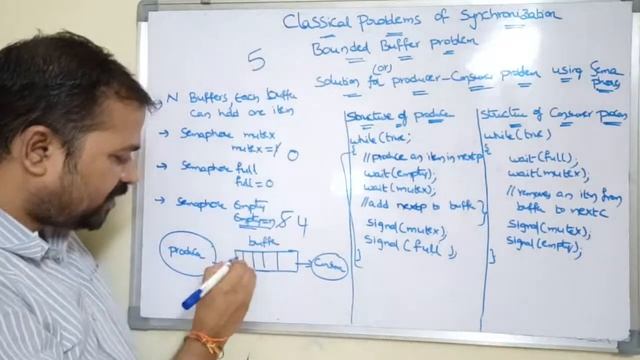 Classical Problems of Synchronization
Bounded Buffer problem
(or)
Solution for producer-Consumer problem using Semaphores
5
N Buffers, each buffer
can hold one item
Semaphore mutex
mutex = 1 0
Semaphore full
full = 0
Semaphore Empty
8 4
buffer
produce
Structure of produce
while(true;
{
// produce an item in nextp
wait(empty);
wait(mutex);
// add nextp to buffer
signal(mutex);
signal(full);
}
Structure of Consumer process
while(true)
{
wait(full);
wait(mutex);
// remove an item from
buffer to nextc
signal(mutex);
signal(empty);
}